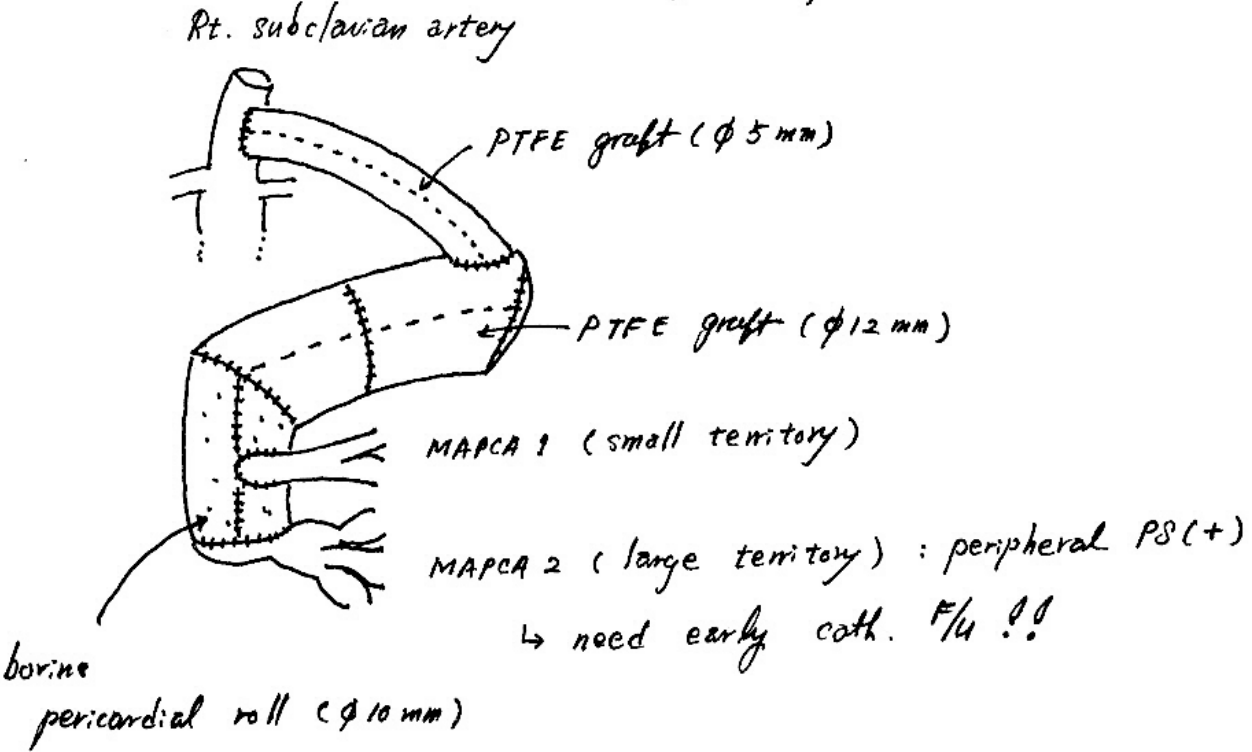 Rt. subclavian artery
PTFE graft (ϕ 5 mm)
PTFE graft (ϕ 12 mm)
MAPCA 1 (small territory)
MAPCA 2 (large territory) : peripheral PS(+)
↳ need early cath. F/u !!
bovine
pericardial roll (ϕ 10 mm)